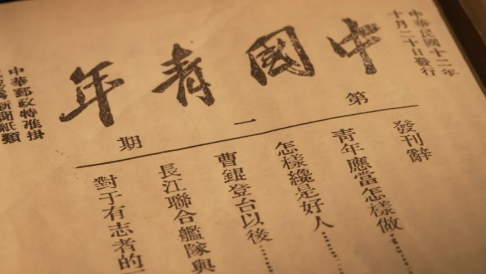 中華民國十二年
十月二十日發行
中國青年
第一期
發刊辭
青年應當怎樣做……
怎樣纔是好人……
曹錕登台以後……
長江聯合艦隊與
對于有志者的
中華郵政特准掛
新聞紙類